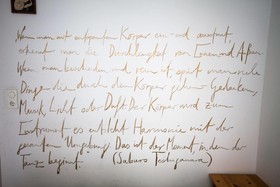 Wenn man mit entspanntem Körper ein- und ausatmet,
erkennt man die Durchlässigkeit von Innen und Außen.
Wenn man bescheiden und rein ist, spürt man wie viele
Dinge die durch den Körper gehen: Gedanken,
Musik, Licht oder Duft. Der Körper wird zum
Instrument es entsteht Harmonie mit der
gesamten Umgebung. Das ist der Moment in dem der
Tanz beginnt. (Saburo Teshigawara)